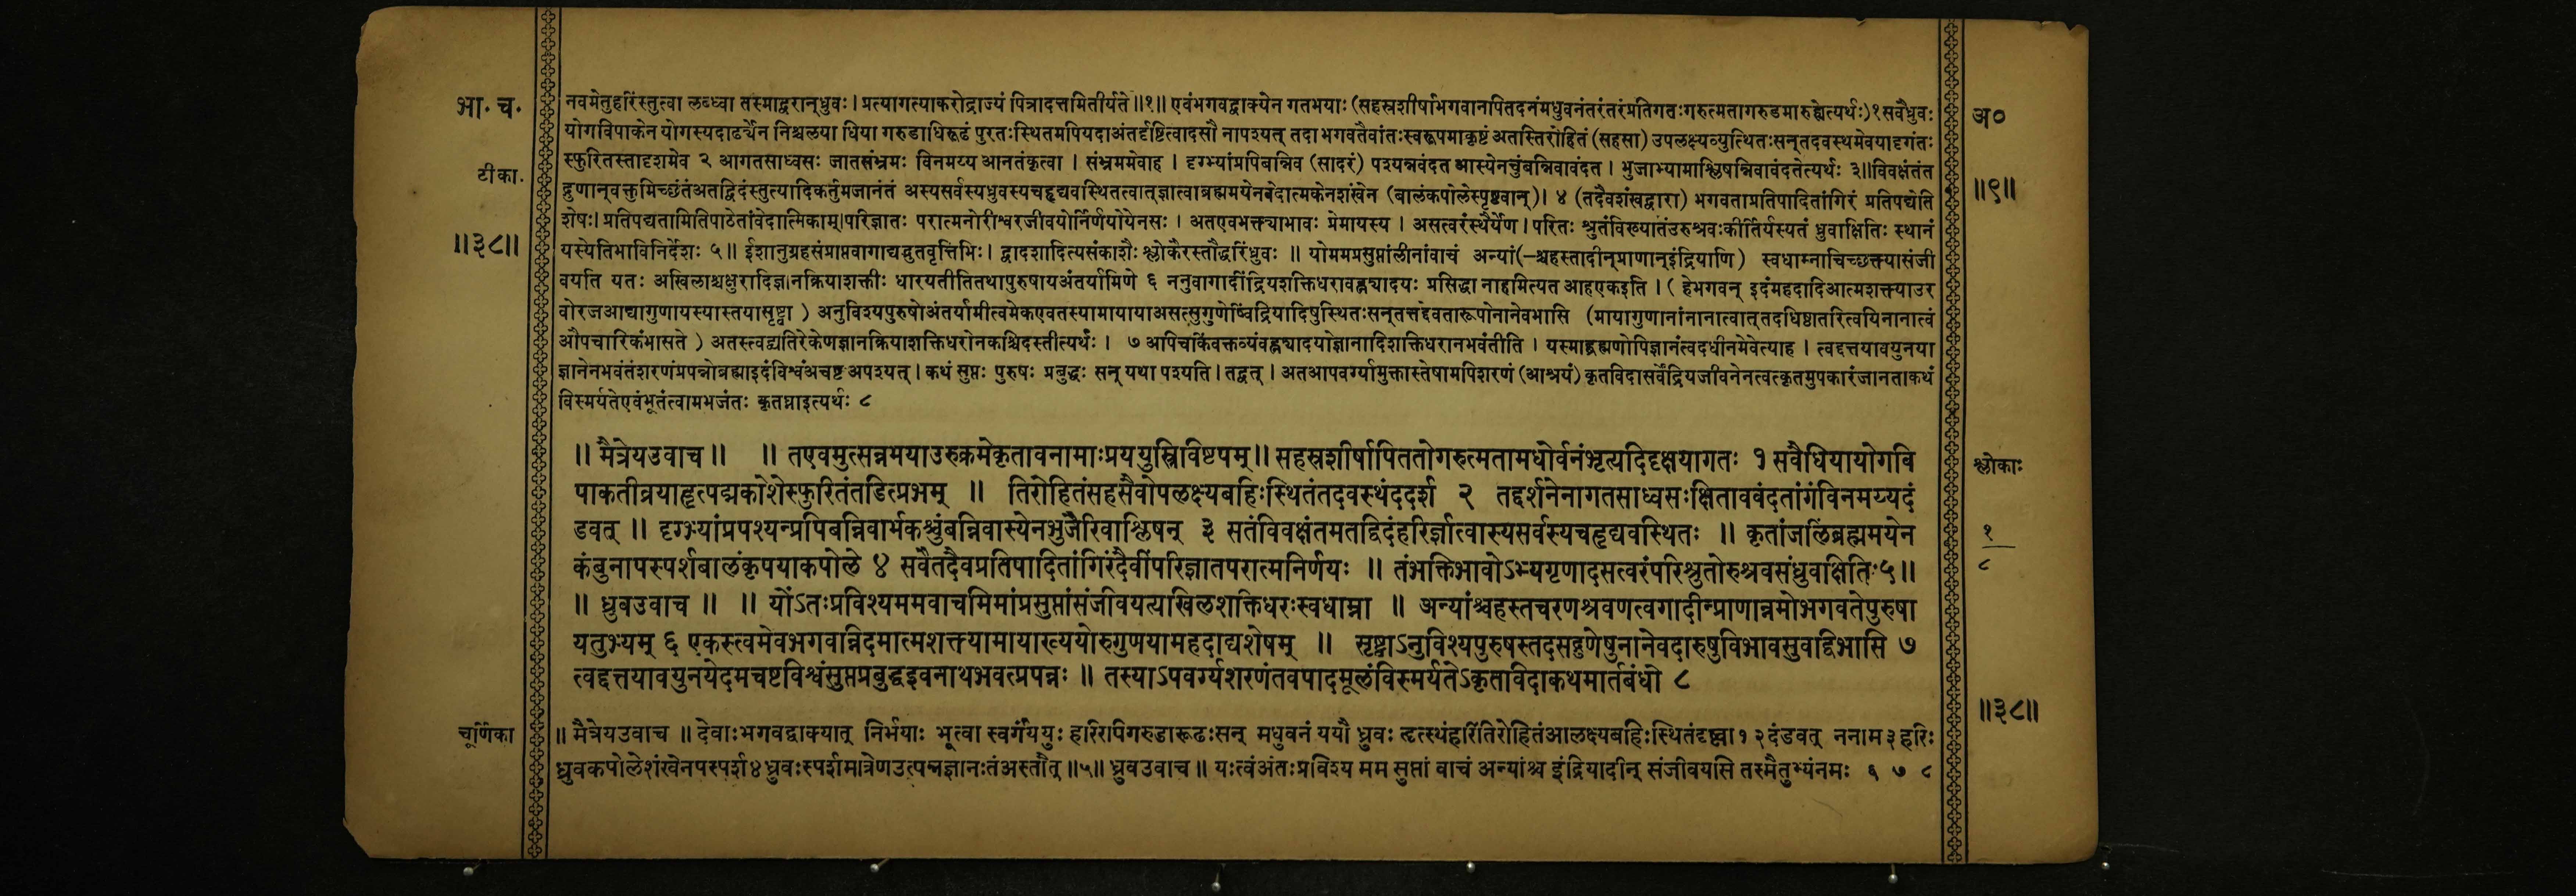 भा. च.
टीका.
॥३८॥
नवमेतुहरिंस्तुत्वा लब्ध्वा तस्माद्वरान्ध्रुवः । प्रत्यागत्याकरोद्राज्यं पित्रादत्तमितीर्यते ॥१॥ एवंभगवद्वाक्येन गतभयाः (सहस्रशीर्षाभगवानपितदनंमधुवनंतरंतरंप्रतिगतःगरुत्मतागरुडमारुह्येत्यर्थः)१सवैध्रुवः
योगविपाकेन योगस्यदार्ढ्येन निश्चलया धिया गरुडाधिरूढं पुरतःस्थितमपियदाअंतर्दृष्टित्वादसौ नापश्यत् तदा भगवतैवांतःस्वरूपमाकृष्टं अतस्तिरोहितं (सहसा) उपलक्ष्यव्युत्थितःसन्तदवस्थमेवयादृगंतः
स्फुरितस्तादृशमेव २ आगतसाध्वसः जातसंभ्रमः विनमय्य आनतंकृत्वा । संभ्रममेवाह । दृग्भ्यांप्रपिबन्निव (सादरं) पश्यन्नवंदत आस्येनचुंबन्निवावंदत । भुजाभ्यामाश्लिषन्निवावंदतेत्यर्थः ३॥विवक्षंतंत
द्गुणान्वक्तुमिच्छंतंअतद्विदंस्तुत्यादिकर्तुमजानंतं अस्यसर्वस्यध्रुवस्यचहृद्यवस्थितत्वात्ज्ञात्वाब्रह्ममयेनवेदात्मकेनशंखेन (बालंकपोलेस्पृष्टवान्)। ४ (तदैवशंखद्वारा) भगवताप्रतिपादितांगिरं प्रतिपद्येति
शेषः। प्रतिपद्यतामितिपाठेतांवेदात्मिकाम्।परिज्ञातः परात्मनोरीश्वरजीवयोर्निर्णयोयेनसः । अतएवभक्त्याभावः प्रेमायस्य । असत्वरंस्थैर्येण । परितः श्रुतंविख्यातंउरुश्रवःकीर्तिर्यस्यतं ध्रुवाक्षितिः स्थानं
यस्येतिभाविनिर्देशः ५॥ ईशानुग्रहसंप्राप्तवागाद्यद्भुतवृत्तिभिः। द्वादशादित्यसंकाशैः श्लोकैरस्तौद्धरिंध्रुवः ॥ योममप्रसुप्तांलीनांवाचं अन्यां(-श्चहस्तादीन्प्राणान्इंद्रियाणि) स्वधाम्नाचिच्छक्त्यासंजी
वयति यतः अखिलाश्चक्षुरादिज्ञानक्रियाशक्तीः धारयतीतितथापुरुषायअंतर्यामिणे ६ ननुवागादींद्रियशक्तिधरावह्न्यादयः प्रसिद्धा नाहमित्यत आहएकइति । ( हेभगवन् इदंमहदादिआत्मशक्त्याउर
वोरजआद्यागुणायस्यास्तयासृष्ट्वा ) अनुविश्यपुरुषोअंतर्यामीत्वमेकएवतस्यामायायाअसत्सुगुणेष्विंद्रियादिषुस्थितःसन्तत्तद्देवतारूपोनानेवभासि (मायागुणानांनानात्वात्तदधिष्ठातरित्वयिनानात्वं
औपचारिकंभासते ) अतस्त्वद्व्यतिरेकेणज्ञानक्रियाशक्तिधरोनकश्चिदस्तीत्यर्थः । ७ अपिचकिंवक्तव्यंवह्न्यादयोज्ञानादिशक्तिधरानभवंतीति । यस्माद्ब्रह्मणोपिज्ञानंत्वदधीनमेवेत्याह । त्वद्दत्तयावयुनया
ज्ञानेनभवंतंशरणंप्रपन्नोब्रह्माइदंविश्वंअचष्ट अपश्यत् । कथं सुप्तः पुरुषः प्रबुद्धः सन् यथा पश्यति । तद्वत् । अतआपवर्ग्यामुक्तास्तेषामपिशरणं (आश्रयं) कृतविदासर्वेंद्रियजीवनेनत्वत्कृतमुपकारंजानताकथं
विस्मर्यतेएवंभूतंत्वामभजंतः कृतघ्नाइत्यर्थः ८
अ०
॥९॥
॥ मैत्रेयउवाच ॥ ॥ तएवमुत्सन्नभयाउरुक्रमेकृतावनामाःप्रययुस्त्रिविष्टपम्॥ सहस्रशीर्षापिततोगरुत्मतामधोर्वनंभृत्यदिदृक्षयागतः १ सवैधियायोगवि
पाकतीव्रयाहृत्पद्मकोशेस्फुरितंतडित्प्रभम् ॥ तिरोहितंसहसैवोपलक्ष्यबहिःस्थितंतदवस्थंददर्श २ तद्दर्शनेनागतसाध्वसःक्षिताववंदतांगंविनमय्यदं
डवत् ॥ दृग्भ्यांप्रपश्यन्प्रपिबन्निवार्भकश्चुंबन्निवास्येनभुजैरिवाश्लिषन् ३ सतंविवक्षंतमतद्विदंहरिर्ज्ञात्वास्यसर्वस्यचहृद्यवस्थितः ॥ कृतांजलिंब्रह्ममयेन
कंबुनापस्पर्शबालंकृपयाकपोले ४ सवैतदैवप्रतिपादितांगिरंदैवींपरिज्ञातपरात्मनिर्णयः ॥ तंभक्तिभावोऽभ्यगृणादसत्वरंपरिश्रुतोरुश्रवसंध्रुवक्षितिः५॥
॥ ध्रुवउवाच ॥ ॥ योंऽतःप्रविश्यममवाचमिमांप्रसुप्तांसंजीवयत्यखिलशक्तिधरःस्वधाम्ना ॥ अन्यांश्चहस्तचरणश्रवणत्वगादीन्प्राणान्नमोभगवतेपुरुषा
यतुभ्यम् ६ एकस्त्वमेवभगवन्निदमात्मशक्त्यामायाख्ययोरुगुणयामहदाद्यशेषम् ॥ सृष्ट्वाऽनुविश्यपुरुषस्तदसद्गुणेषुनानेवदारुषुविभावसुवद्विभासि ७
त्वद्दत्तयावयुनयेदमचष्टविश्वंसुप्तप्रबुद्धइवनाथभवत्प्रपन्नः ॥ तस्याऽपवर्ग्यशरणंतवपादमूलंविस्मर्यतेऽकृतविदाकथमार्तबंधो ८
श्लोकाः
१
८
॥३८॥
चूर्णिका
॥ मैत्रेयउवाच ॥ देवाःभगवद्वाक्यात् निर्भयाः भूत्वा स्वर्गंययुः हरिरपिगरुडारूढःसन् मधुवनं ययौ ध्रुवः हृत्स्थंहरिंतिरोहितंआलक्ष्यबहिःस्थितंदृष्ट्वा१ २दंडवत् ननाम ३ हरिः
ध्रुवकपोलेशंखेनपस्पर्श४ध्रुवःस्पर्शमात्रेणउत्पन्नज्ञानःतंअस्तौत् ॥५॥ ध्रुवउवाच ॥ यःत्वंअंतःप्रविश्य मम सुप्तां वाचं अन्यांश्च इंद्रियादीन् संजीवयसि तस्मैतुभ्यंनमः ६ ७ ८